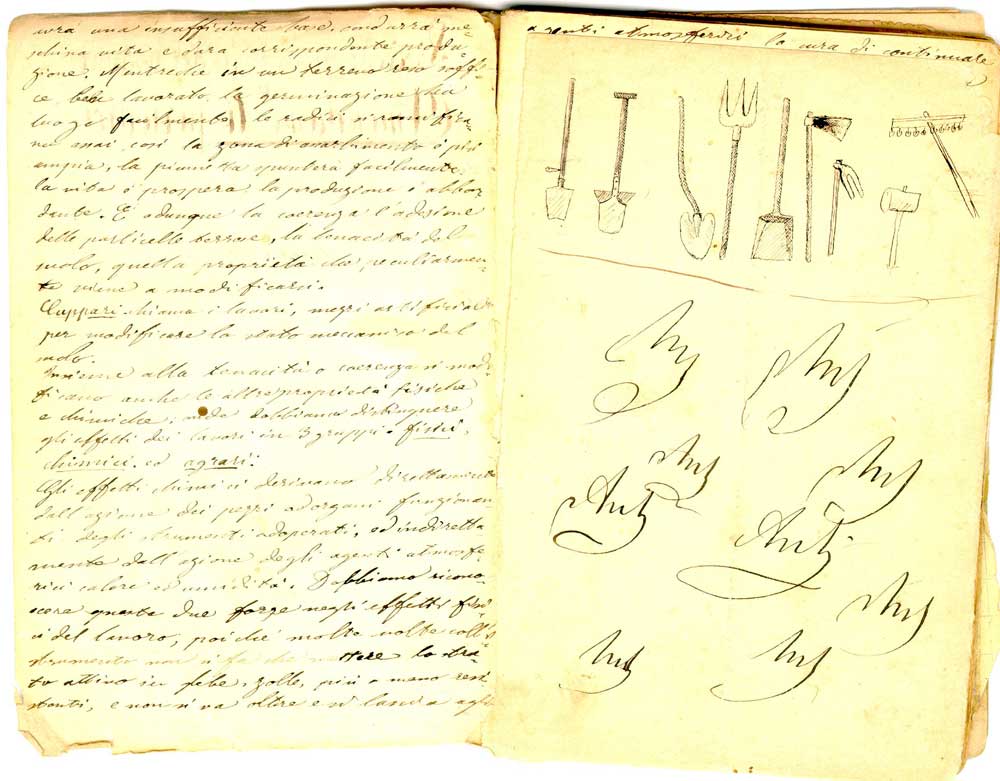 avrà una insufficiente base, condurrà me-
schina vita e darà corrispondente produ-
zione. Mentrechè in un terreno reso soffi-
ce bene lavorato, la germinazione ha
luogo facilmente, le radici si ramifica-
no assai, così la zona di assorbimento è più
ampia, la pianticella spunterà facilmente,
la vita è prospera la produzione è abbon-
dante. È adunque la coerenza l'adesione
delle particelle terrose, la tenacità del
suolo, quella proprietà che peculiarmen-
te viene a modificarsi.
Cuppari chiama i lavori, mezzi artificiali
per modificare lo stato meccanico del
suolo.
Insieme alla tenacità o coerenza si modi-
ficano anche le altre proprietà fisiche
e chimiche, onde dobbiamo distinguere
gli effetti dei lavori in 3 gruppi. fisici,
chimici, ed agrari.
Gli effetti chimici derivano direttamente
dall'azione dei pezzi ad organi funzionan-
ti degli strumenti adoperati, ed indiretta
mente dall'azione degli agenti atmosfe-
rici calore ed umidità. Dobbiamo ricono-
scere queste due forze negli effetti fisi-
ci del lavoro, poichè molte volte collo
strumento non si fa che mettere lo stra-
to attivo in fette, zolle, più o meno resi-
stenti, e non si va oltre e si lascia agli
agenti atmosferici la cura di continuare